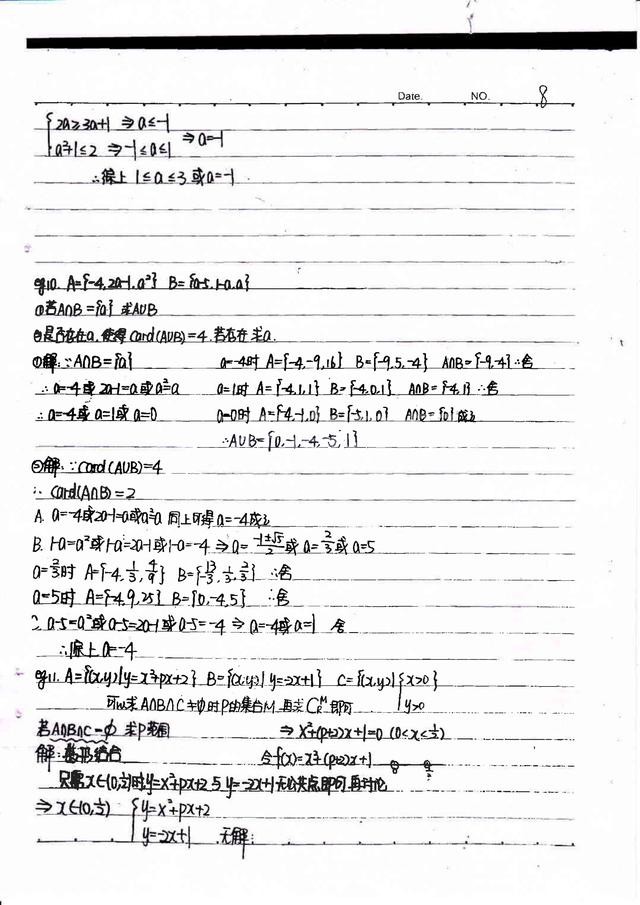 Date. NO. 8
{2a≥3a+1 ⇒a≤-1
a²+1≤2 ⇒-1≤a≤1 ⇒a=-1
∴综上 1≤a≤3 或a=-1
eg10. A={-4,2a-1,a²} B={a-5,1-a,a}
①若A∩B={a} 求A∪B
②是否存在a,使得 Card(A∪B)=4.若存在 求a.
①解:∵A∩B={a} a=-4时 A={-4,-9,16} B={-9,5,-4} A∩B={-9,-4}∴舍
∴a=-4或2a-1=a或a²=a a=1时 A={-4,1,1} B={-4,0,1} A∩B={-4,1}∴舍
∴a=-4或a=1或a=0 a=0时 A={-4,-1,0} B={-5,1,0} A∩B={0}成立
∴A∪B={0,-1,-4,-5,1}
②解:∵Card(A∪B)=4
∴Card(A∩B)=2
A. a=-4或2a-1=a或a²=a 同上可得a=-4成立
B. 1-a=a²或1-a=2a-1或1-a=-4 ⇒a=(-1±√5)/2或a=2/3或a=5
a=2/3时 A={-4,1/3,4/9} B={-13/3,1/3,2/3} ∴舍
a=5时 A={-4,9,25} B={0,-4,5} ∴舍
C. a-5=a²或a-5=2a-1或a-5=-4 ⇒a=-4或a=1 舍
∴综上a=-4
eg11. A={(x,y)|y=x²+px+2} B={(x,y)|y=-2x+1} C={(x,y)|{x>0
y>0}
可以求A∩B∩C≠∅时P的集合M,再求 即可
若A∩B∩C=∅ 求P范围 ⇒x²+(p+2)x+1=0 (0<x<1/2)
解: 数形结合 令f(x)=x²+(p+2)x+1
只需x∈(0,1/2)时y=x²+px+2与y=-2x+1无公共点即可
⇒x∈(0,1/2) {y=x²+px+2
y=-2x+1 无解: